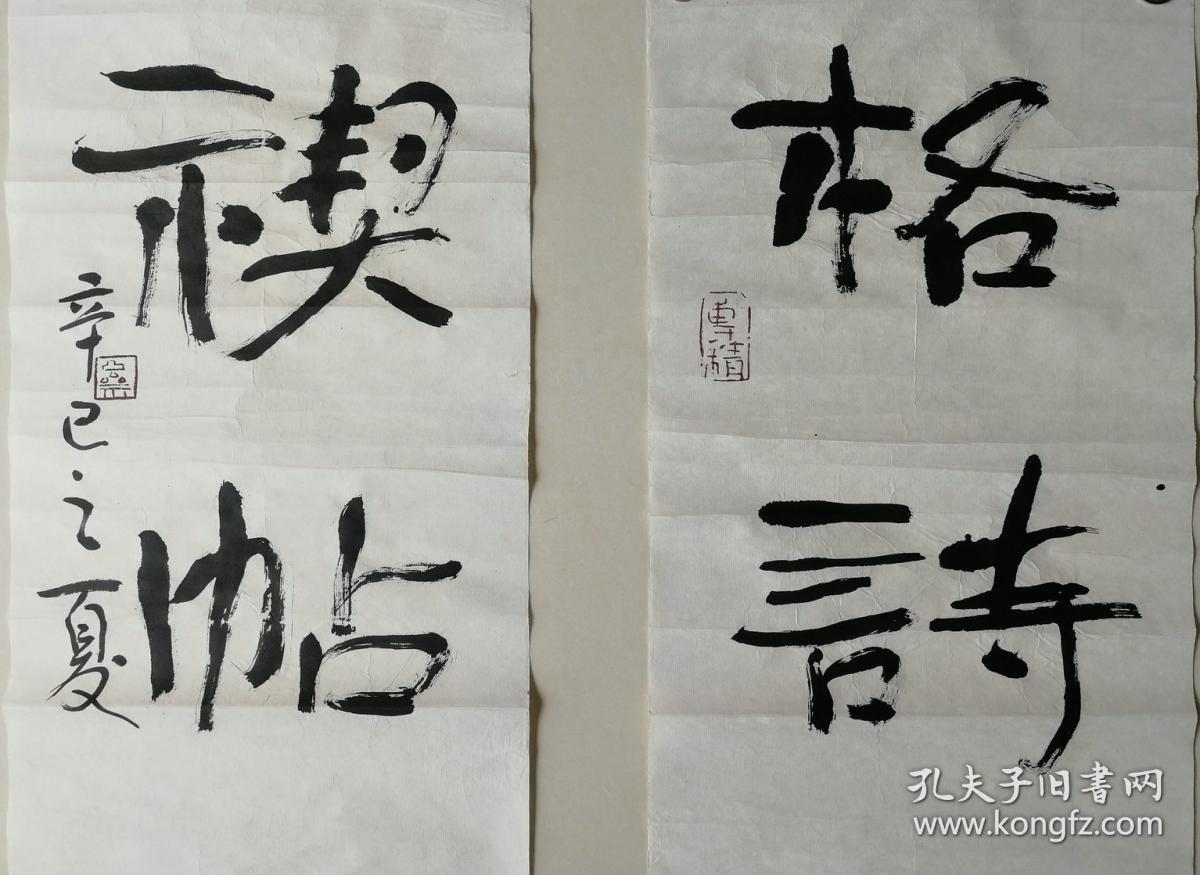 格詩
禊帖
辛巳之夏
孔夫子旧书网
www.kongfz.com